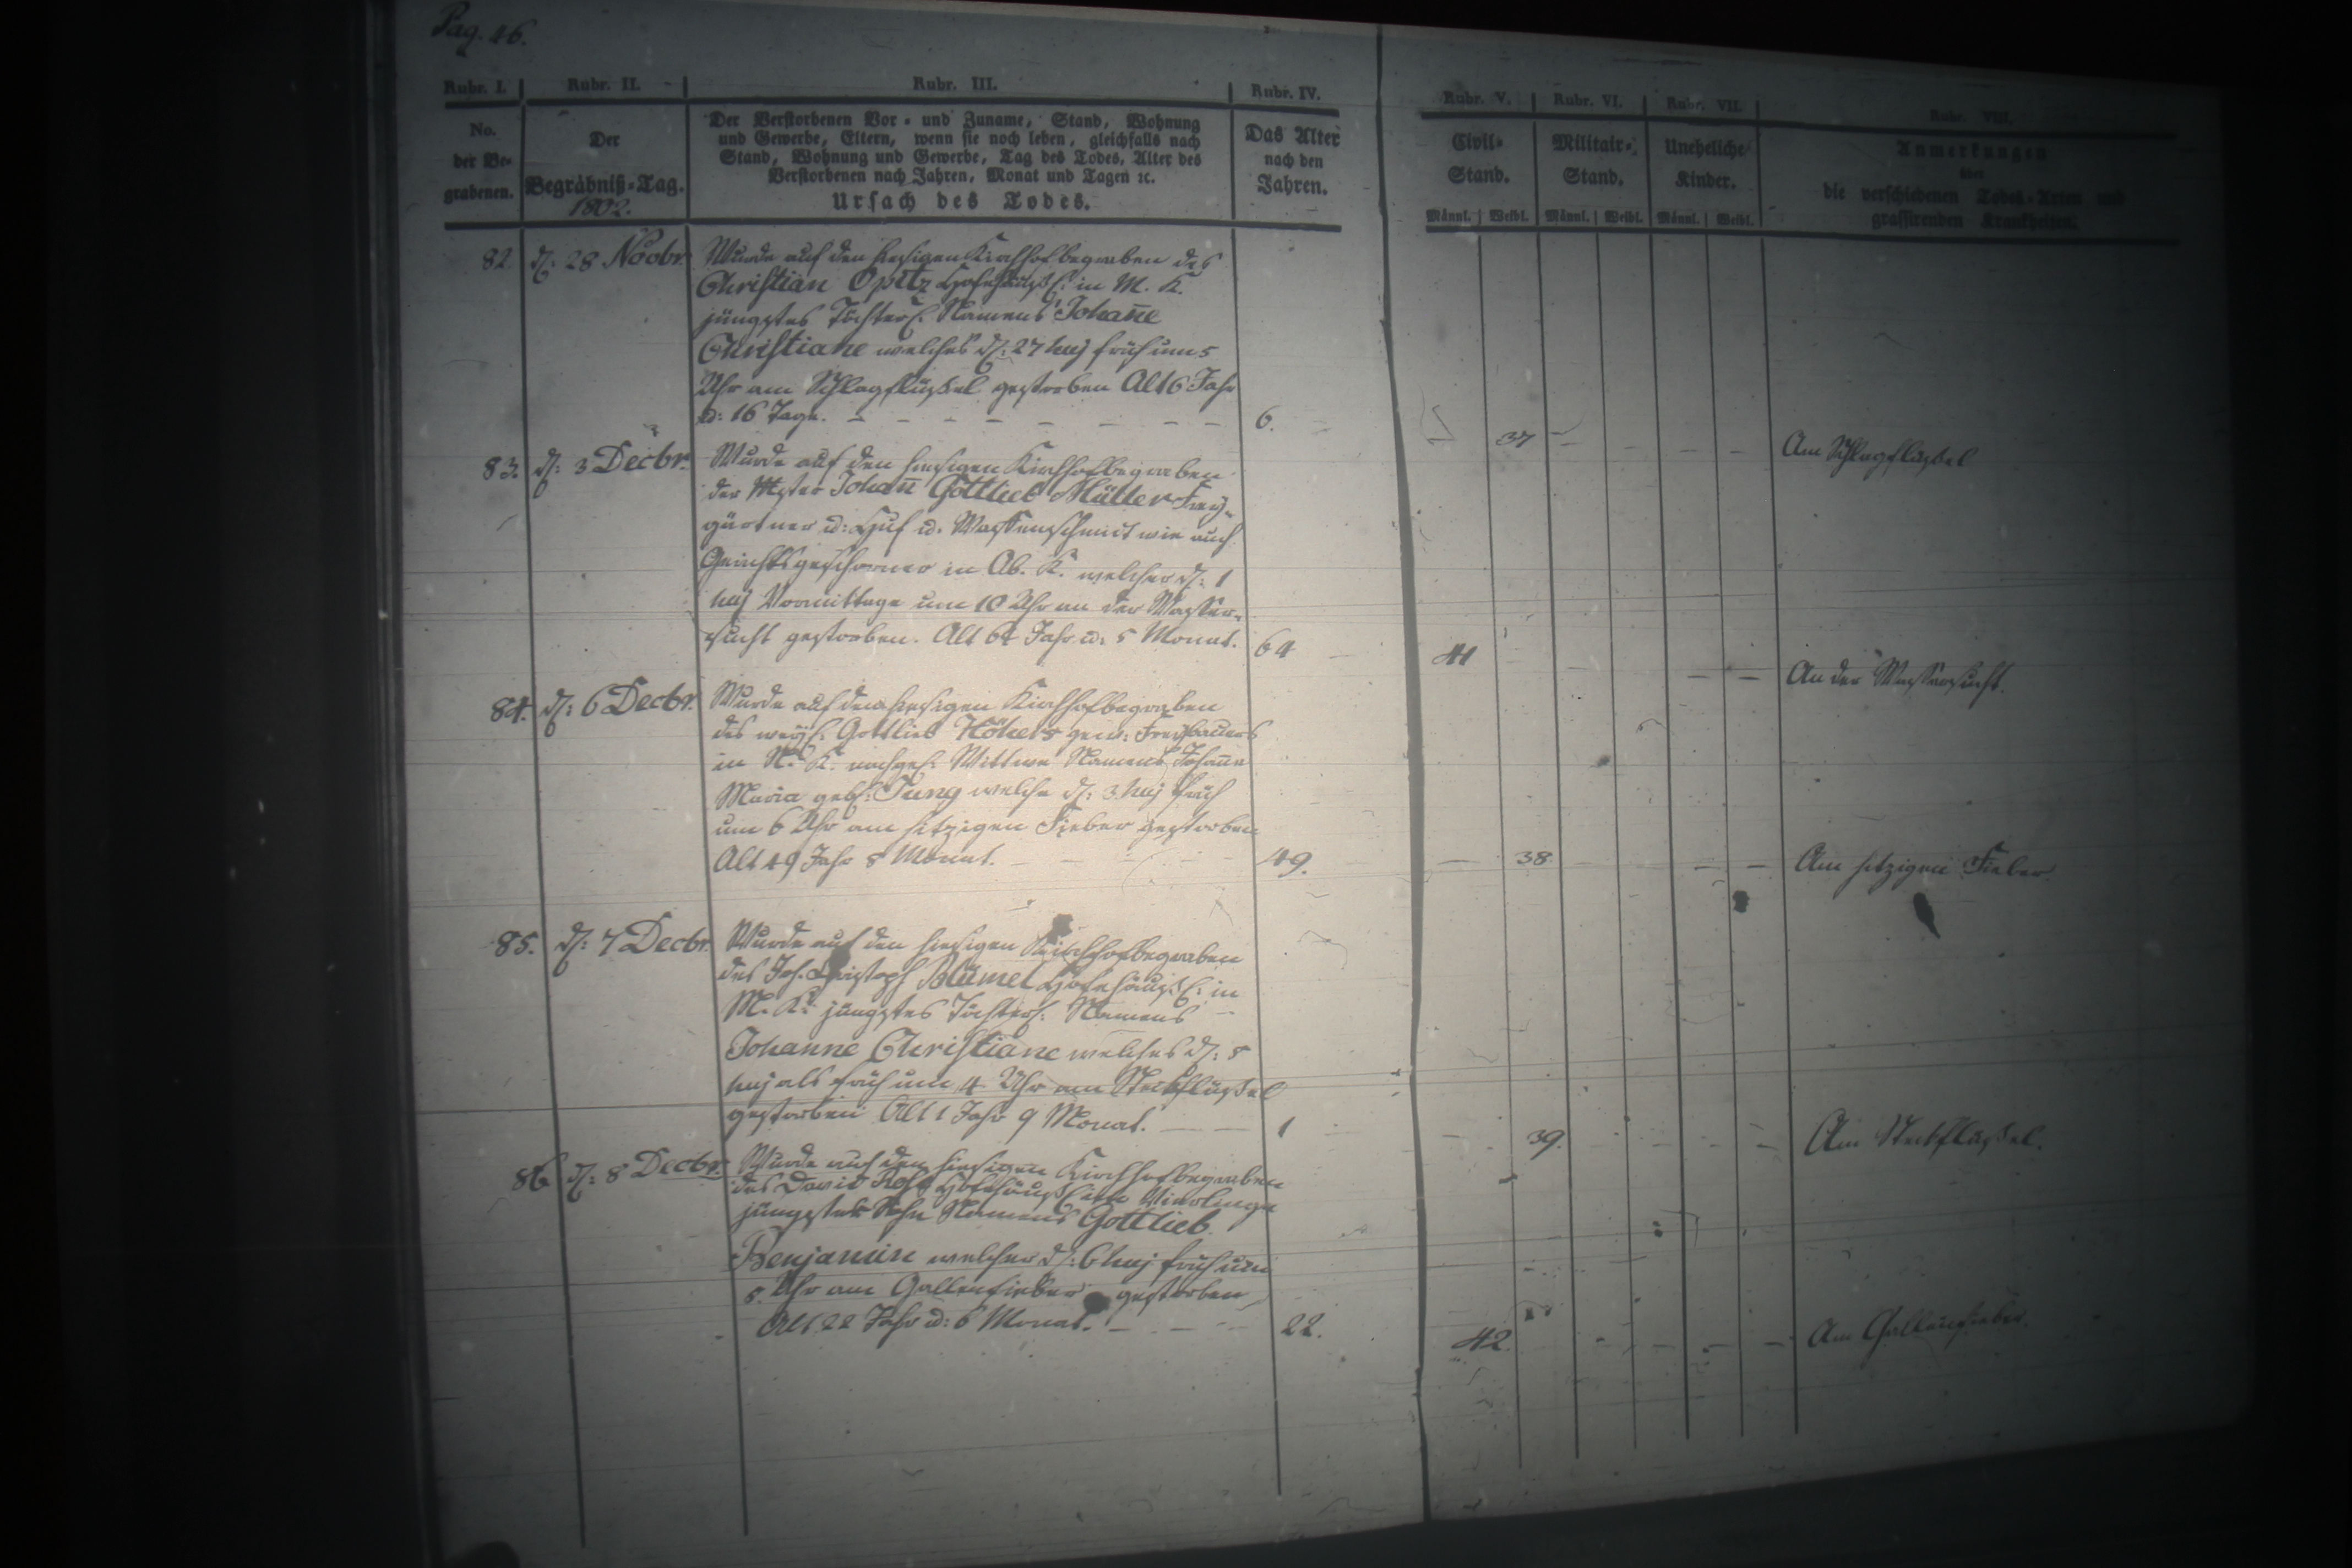 Pag. 46.
Rubr. I. Rubr. II. Rubr. III. Rubr. IV. Rubr. V. Rubr. VI. Rubr. VII. Rubr. VIII.
No. der Be-grabenen.
Der Begräbniß-Tag. 1802.
Der Verstorbenen Vor- und Zuname, Stand, Wohnung
und Gewerbe, Eltern, wenn sie noch leben, gleichfalls nach
Stand, Wohnung und Gewerbe, Tag des Todes, Alter des
Verstorbenen nach Jahren, Monat und Tagen ꝛc.
Ursach des Todes.
Das Alter nach den Jahren.
Civil-Stand.
Militair-Stand.
Uneheliche Kinder.
Männl. Weibl. Männl. Weibl. Männl. Weibl.
Anmerkungen
über
die verschiedenen Todes-Arten und
grassirenden Krankheiten.
82. d: 28 Novbr. Wurde auf den hiesigen Kirchhof begraben des
Christian Opitz Hofehäusl: in M. K.
jüngstes Töchterl. Namens Johañe
Christiane welches d: 27 huj früh um 5
Uhr am Schlagflüssel gestorben Alt 6 Jahr
u: 16 Tage. 6. 37 Am Schlagflüssel
83. d: 3 Decbr. Wurde auf den hiesigen Kirchhof begraben
der Mstr Johañ Gottlieb Müller Frey-
gärtner u: Huf u. Waffenschmit wie auch
Gerichtsgeschworner in Ob. K. welcher d: 1
huj Vormittage um 10 Uhr an der Wasser-
sucht gestorben. Alt 64 Jahr u: 5 Monat. 64 41 An der Wassersucht.
84. d: 6 Decbr. Wurde auf den hiesigen Kirchhof begraben
des weyl: Gottlieb gew: Freybauers
in N. K. nachgel. Wittwe Namens Johañe
Maria geb: Jung welche d: 3 huj früh
um 6 Uhr am hitzigen Fieber gestorben
Alt 49 Jahr 8 Monat. 49. 38 Am hitzigen Fieber
85. d: 7 Decbr. Wurde auf den hiesigen Kirchhof begraben
des Joh. Christoph Blümel Hofehäusl: in
M. K. jüngstes Töchterl: Namens
Johanne Christiane welches d: 5
huj als früh um 4 Uhr am Steckflüssel
gestorben Alt 1 Jahr 9 Monat. 1 39. Am Steckflüssel.
86 d: 8 Decbr. Wurde auf den hiesigen Kirchhof begraben
des David Hofehäusl:
jüngster Sohn Namens Gottlieb
Benjamin welcher d: 6 huj früh um
5 Uhr am Gallenfieber gestorben
Alt 22 Jahr u: 6 Monat. 22. 42. Am Gallenfieber.